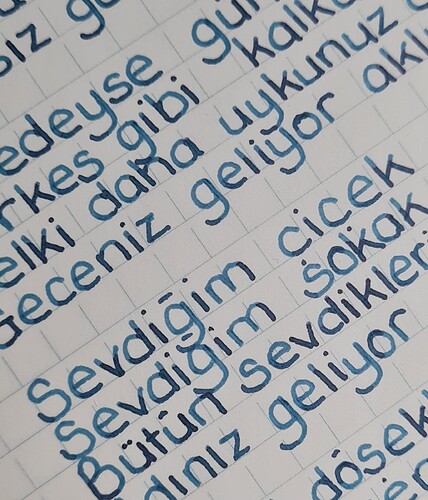 edeyse gün
rkes gibi kalk
elki daha uykunuz
Geceniz geliyor aklı
Sevdiğim cicek
Sevdiğim sokak
Bütün sevdikleri
dınız geliyor